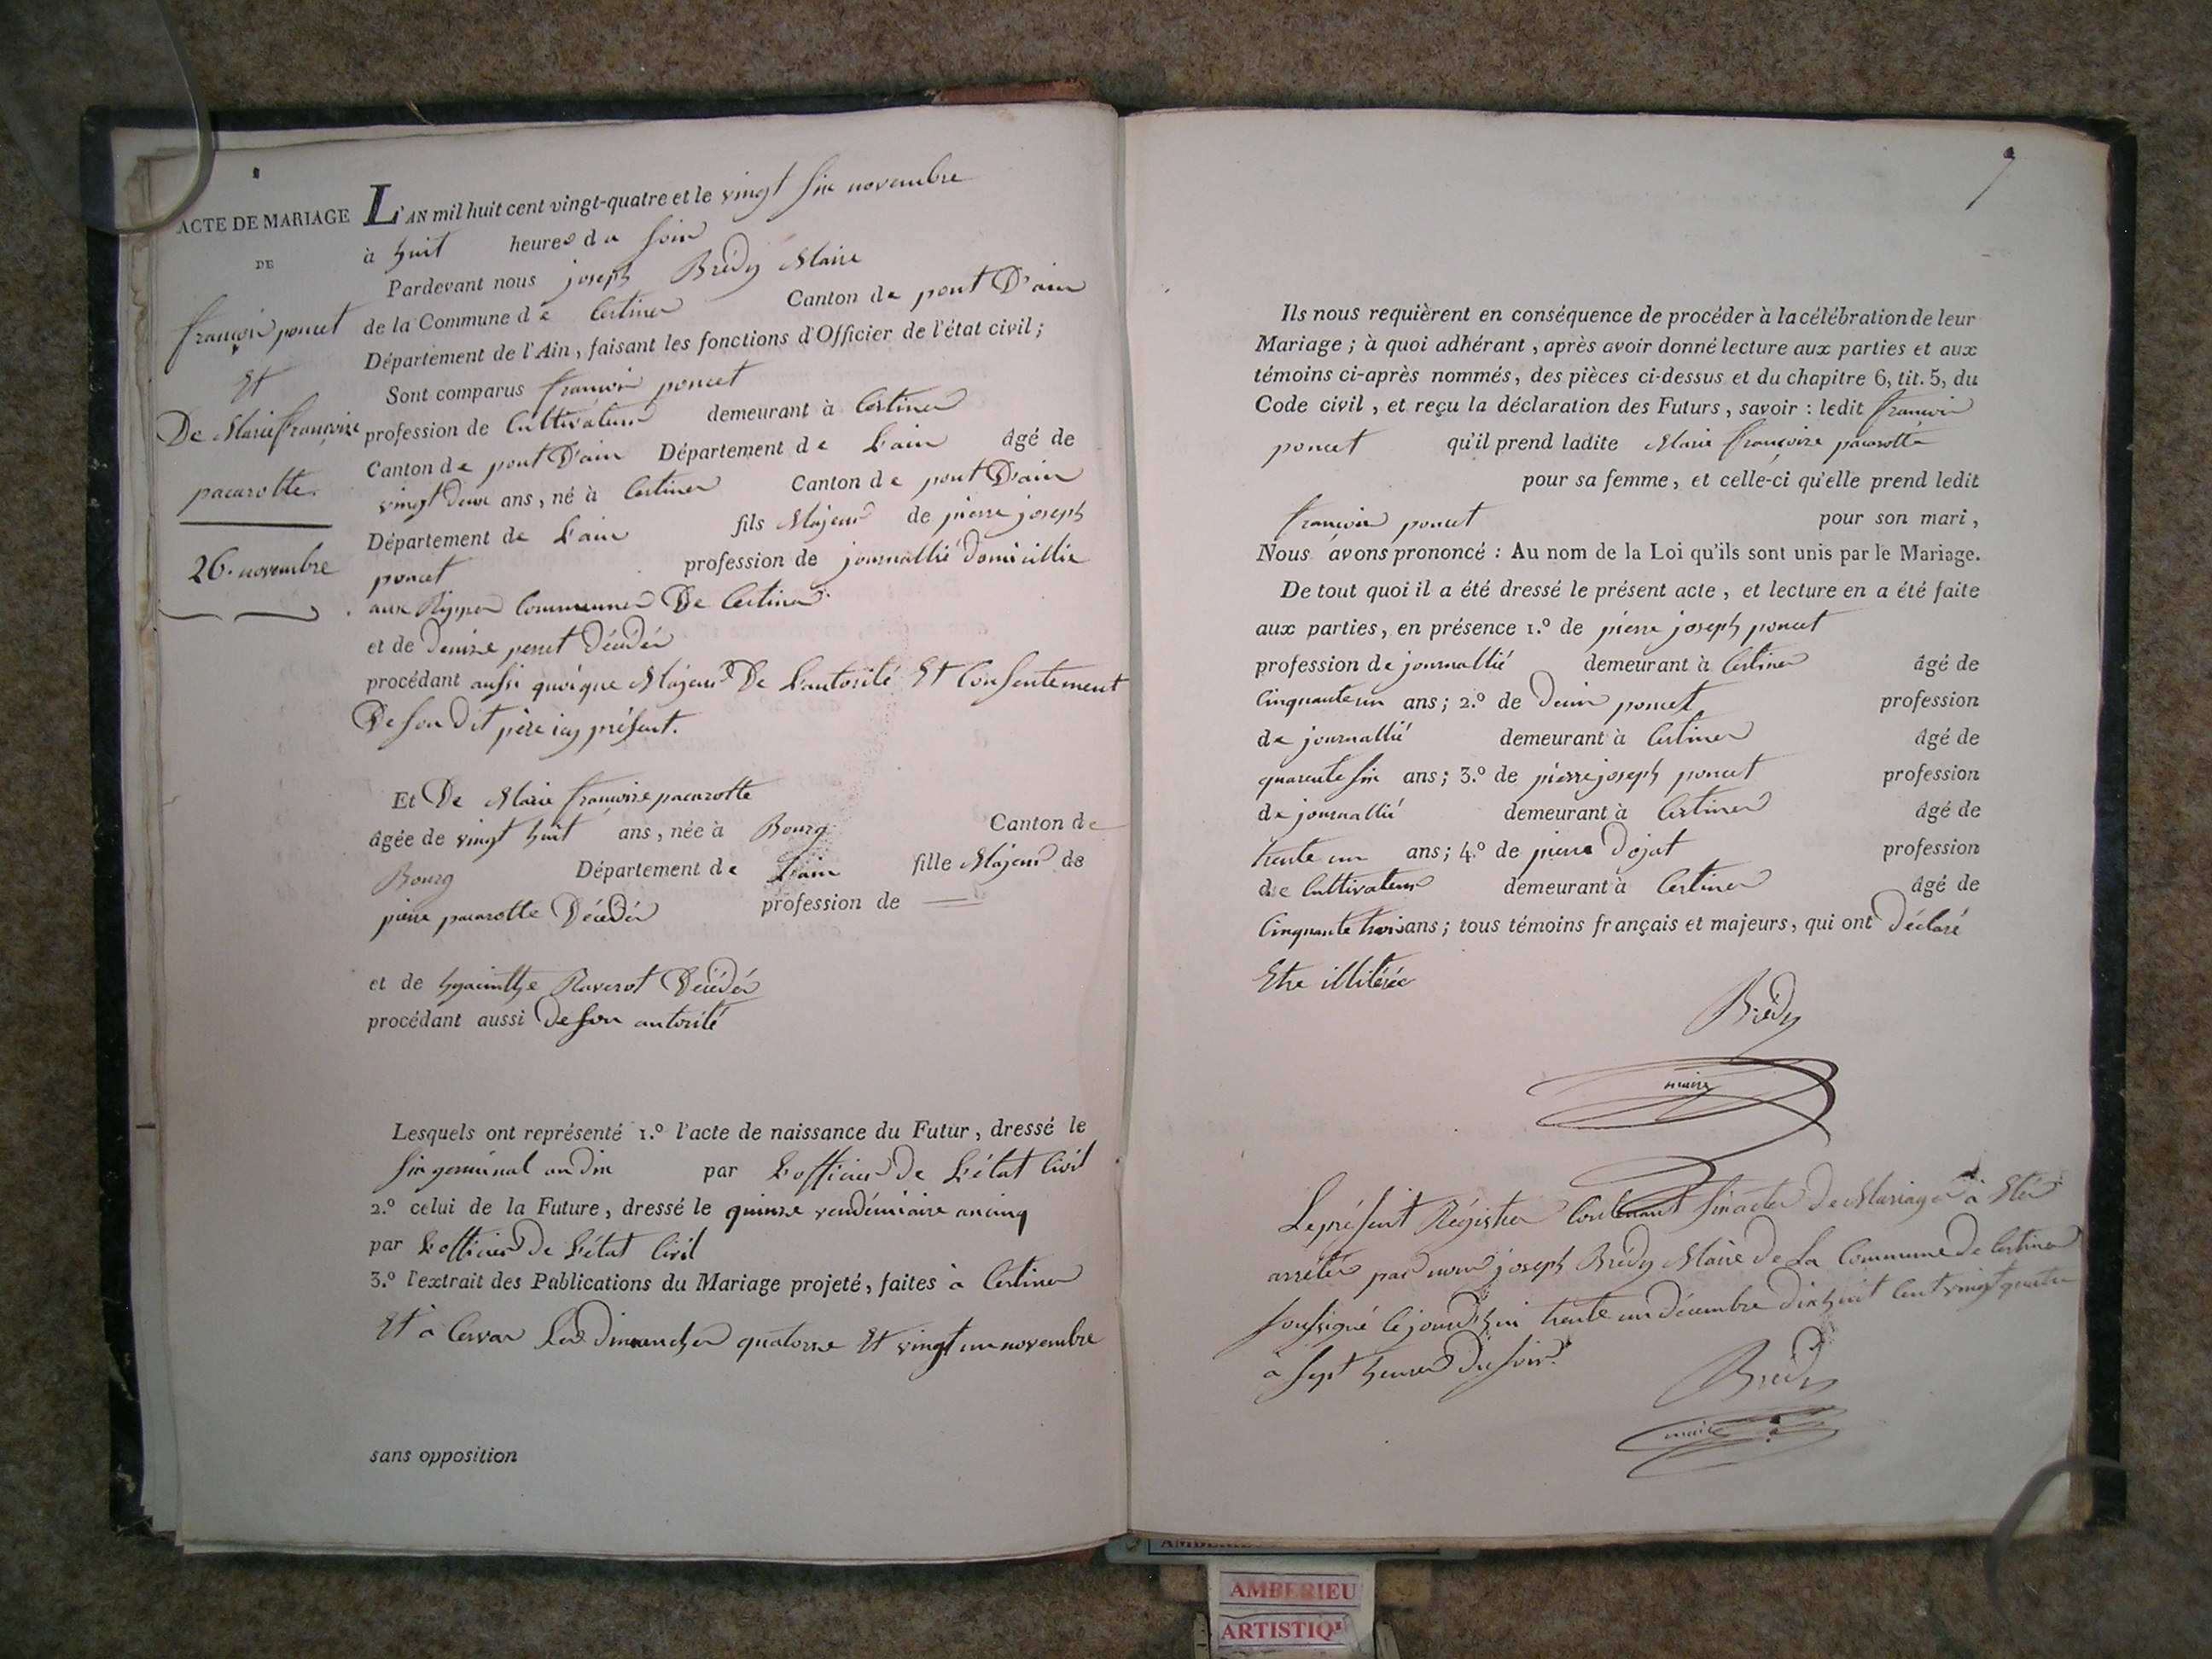 ACTE DE MARIAGE
DE
françois poncet
Et
De Marie françoise
pacarotte.
26. novembre
L'AN mil huit cent vingt-quatre et le vingt six novembre
à huit heures du soir
Pardevant nous joseph Brédy Maire
de la Commune de Certines Canton de pont D'ain
Département de l'Ain, faisant les fonctions d'Officier de l'état civil;
Sont comparus françois poncet
profession de Cultivateur demeurant à Certines
Canton de pont D'ain Département de L'ain âgé de
vingt deux ans, né à Certines Canton de pont D'ain
Département de L'ain fils Majeur de pierre joseph
poncet profession de journallié domicillié
aux Rippes Communes De Certines
et de Denize perret Décédés
procédant aussi quoique Majeur De L'autorité Et Consentement
De son dit père icy présent.
Et De Marie françoise pacarotte
âgée de vingt huit ans, née à Bourg Canton de
Bourg Département de L'ain fille Majeur de
pierre pacarotte Décédés profession de —
et de hyacinthe Raverot Décédés
procédant aussi de son autorité
Lesquels ont représenté 1.º l'acte de naissance du Futur, dressé le
six germinal an dix par L'officier De L'état Civil
2.º celui de la Future, dressé le quinze vendémiaire an cinq
par L'officier De L'état Civil
3.º l'extrait des Publications du Mariage projeté, faites à Certines
Et à Servas Les dimanches quatorze Et vingt un novembre
sans opposition
7
Ils nous requièrent en conséquence de procéder à la célébration de leur
Mariage; à quoi adhérant, après avoir donné lecture aux parties et aux
témoins ci-après nommés, des pièces ci-dessus et du chapitre 6, tit. 5, du
Code civil, et reçu la déclaration des Futurs, savoir : ledit françois
poncet qu'il prend ladite Marie françoise pacarotte
pour sa femme, et celle-ci qu'elle prend ledit
françois poncet pour son mari,
Nous avons prononcé : Au nom de la Loi qu'ils sont unis par le Mariage.
De tout quoi il a été dressé le présent acte, et lecture en a été faite
aux parties, en présence 1.º de pierre joseph poncet
profession de journallié demeurant à Certines âgé de
Cinquante un ans; 2.º de Denis poncet profession
de journallié demeurant à Certines âgé de
quarente six ans; 3.º de pierre joseph poncet profession
de journallié demeurant à Certines âgé de
trente un ans; 4.º de pierre Dojat profession
de Cultivateur demeurant à Certines âgé de
Cinquante trois ans; tous témoins français et majeurs, qui ont Déclaré
Etre illitérée
Brédy
maire
Le présent Régistre Contenant six actes De Mariages à Eté
arrêter par nous joseph Brédy Maire De La Commune De Certines
soussigné cejourd'hui trente un décembre dix huit Cent vingt quatre
à sept heures Du soir.
Brédy
maire
AMBERIEU
ARTISTIQ